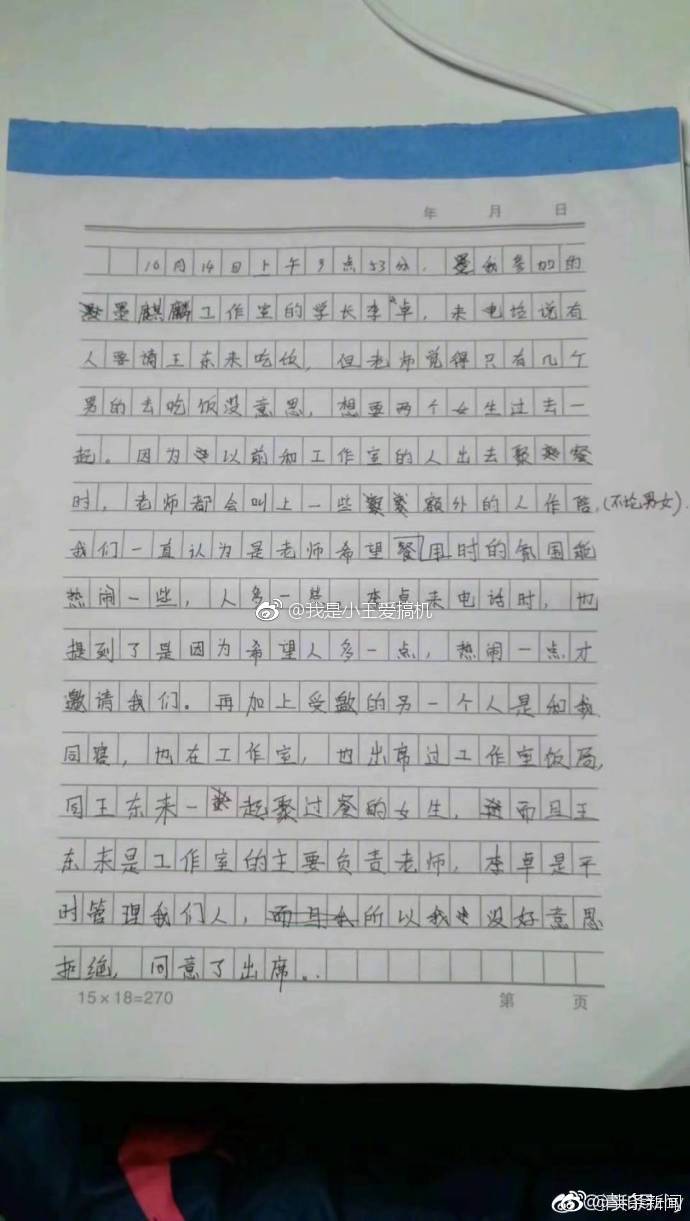 年 月 日
10月14日上午9点53分，我参加的
墨麒麟工作室的学长李卓，来电话说有
人要请王东来吃饭，但老师觉得只有几个
男的去吃饭没意思，想要两个女生过去一
起。因为以前和工作室的人出去聚餐
时，老师都会叫上一些额外的人作陪，(不论男女)
我们一直认为是老师希望餐用时的氛围能
热闹一些，人多一些，李卓来电话时，也
提到了是因为希望人多一点，热闹一点才
邀请我们。再加上受邀的另一个人是和我
同寝，也在工作室，也出席过工作室饭局，
同王东来一起聚过餐的女生，而且王
东来是工作室的主要负责老师，李卓是平
时管理我们人，所以我没好意思
拒绝，同意了出席。
15×18=270 第 页
@我是小王爱搞机